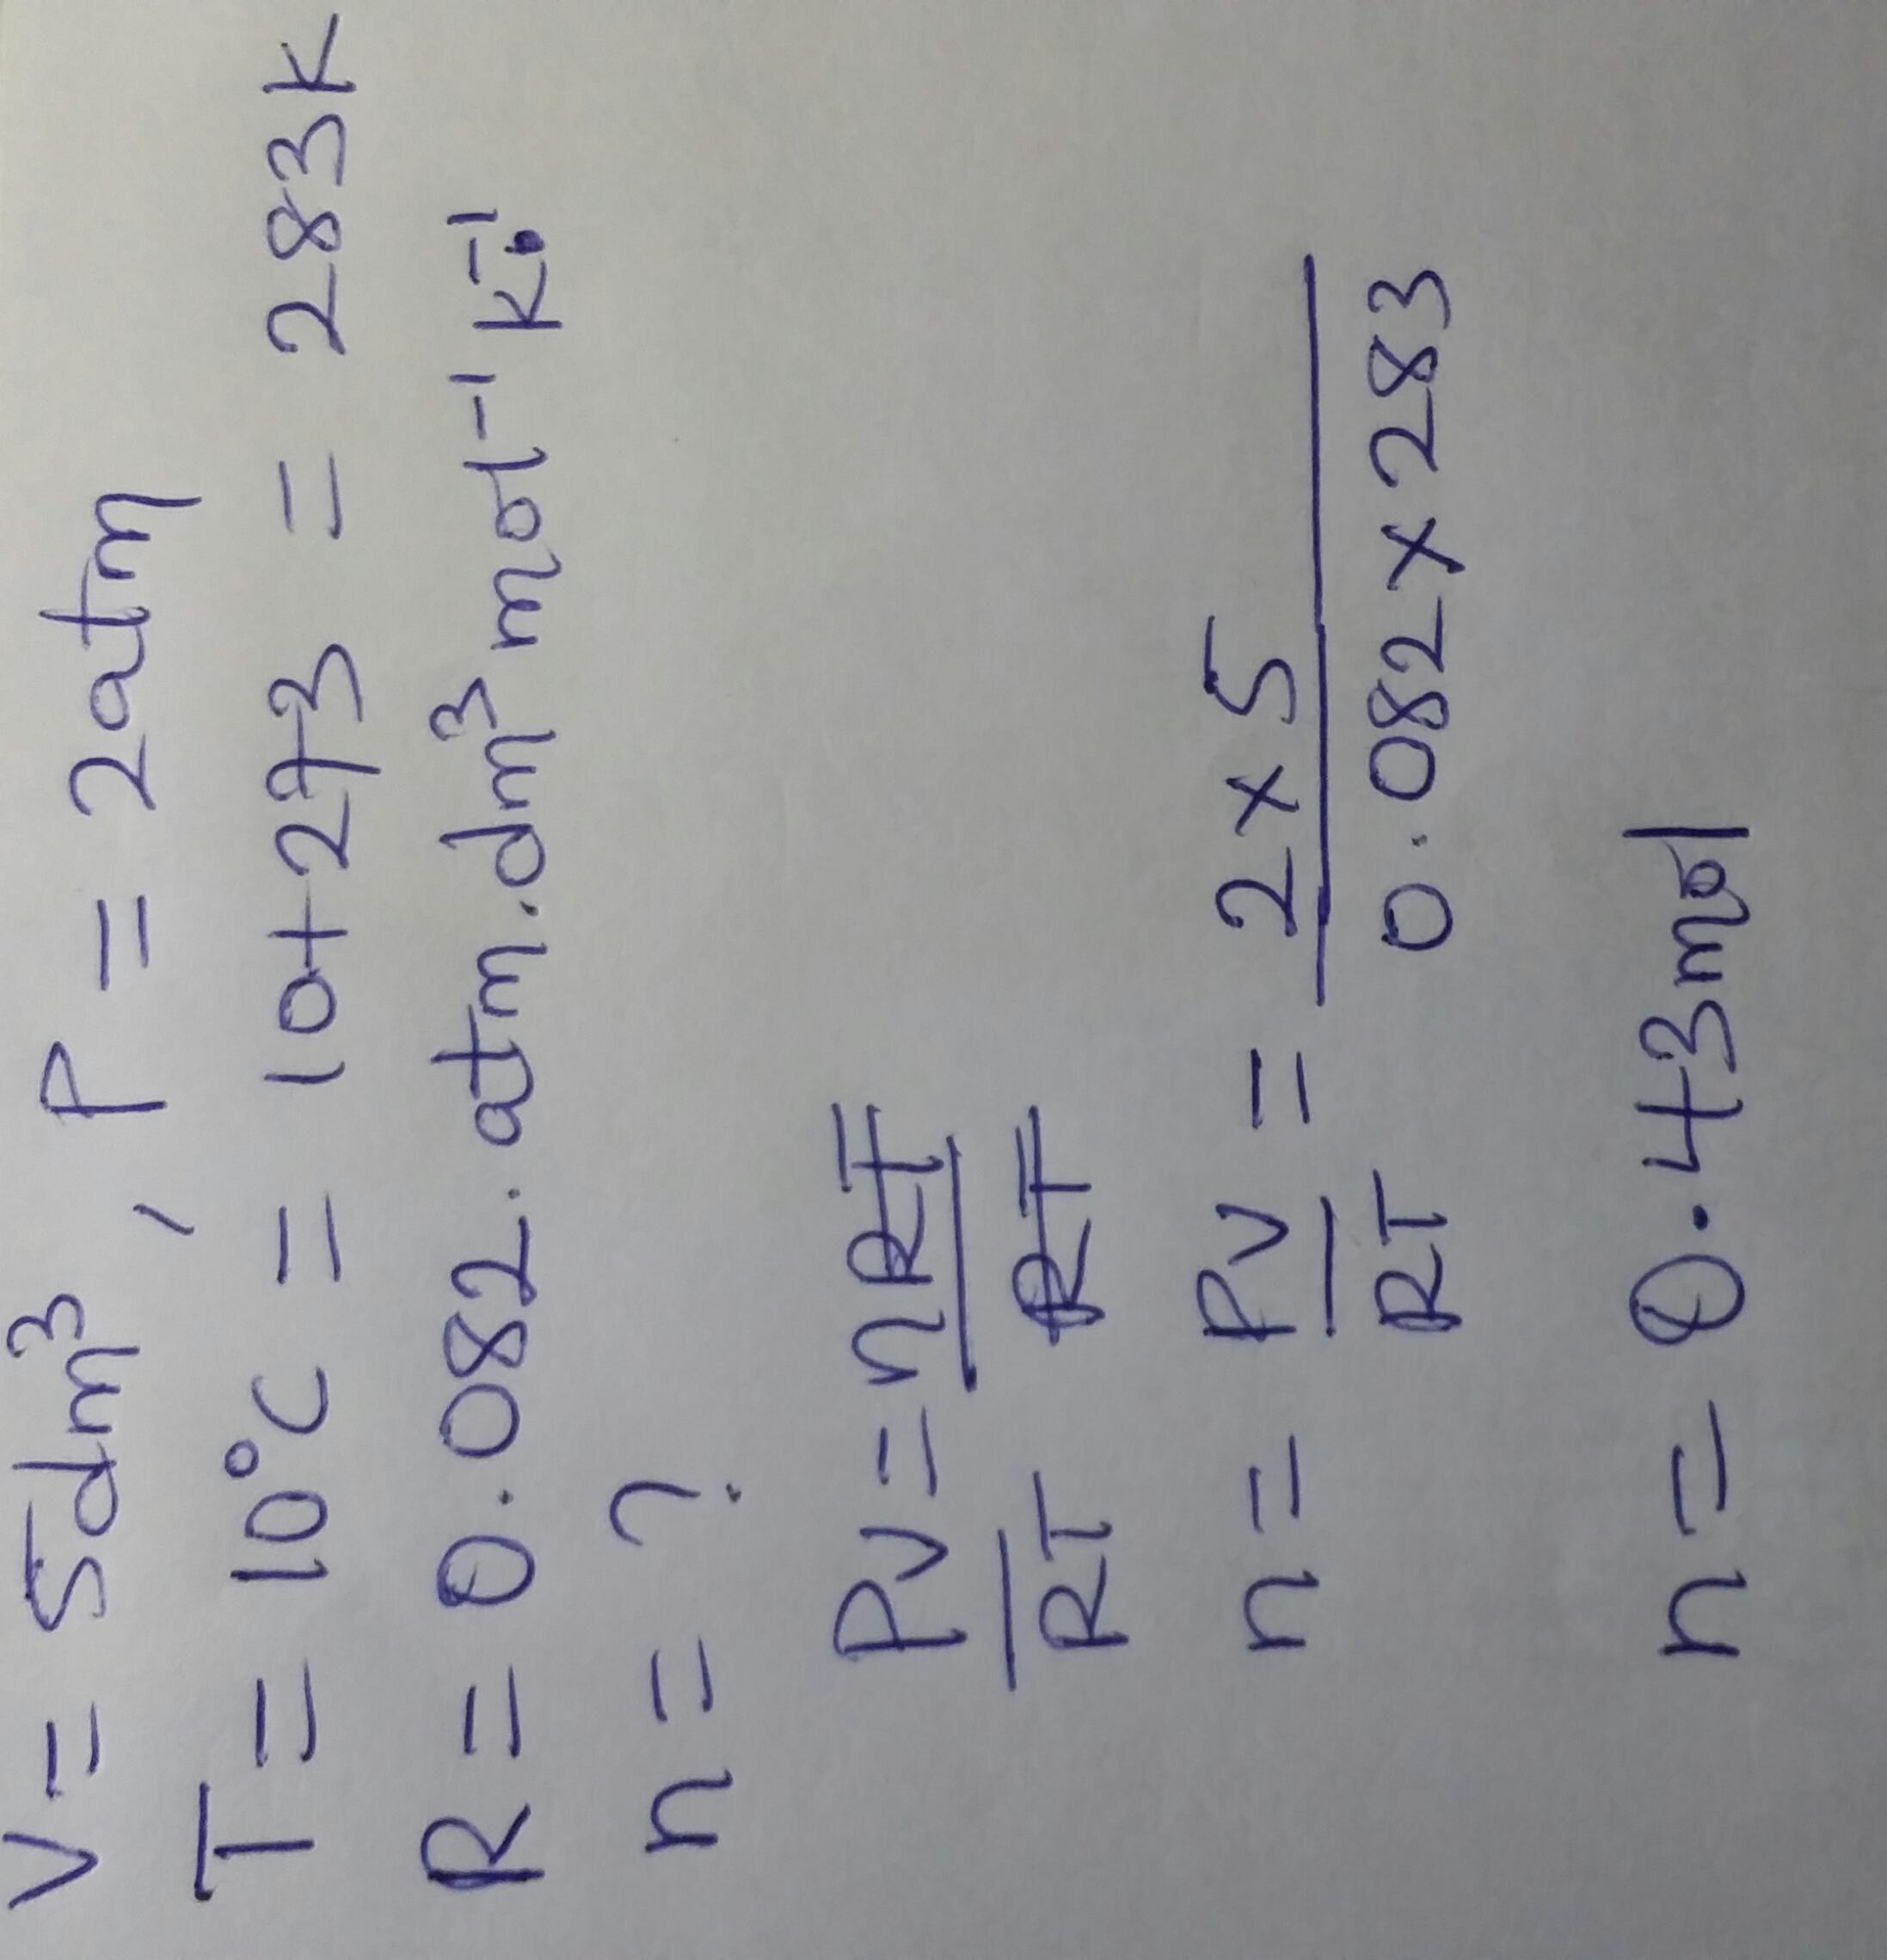 V = 5dm³, P = 2atm
T = 10°C = 10+273 = 283K
R = 0.082.atm.dm³mol⁻¹K⁻¹.
n = ?
PV = nRT
RT RT
n = PV = 2 x 5
RT 0.082 x 283
n = 0.43mol